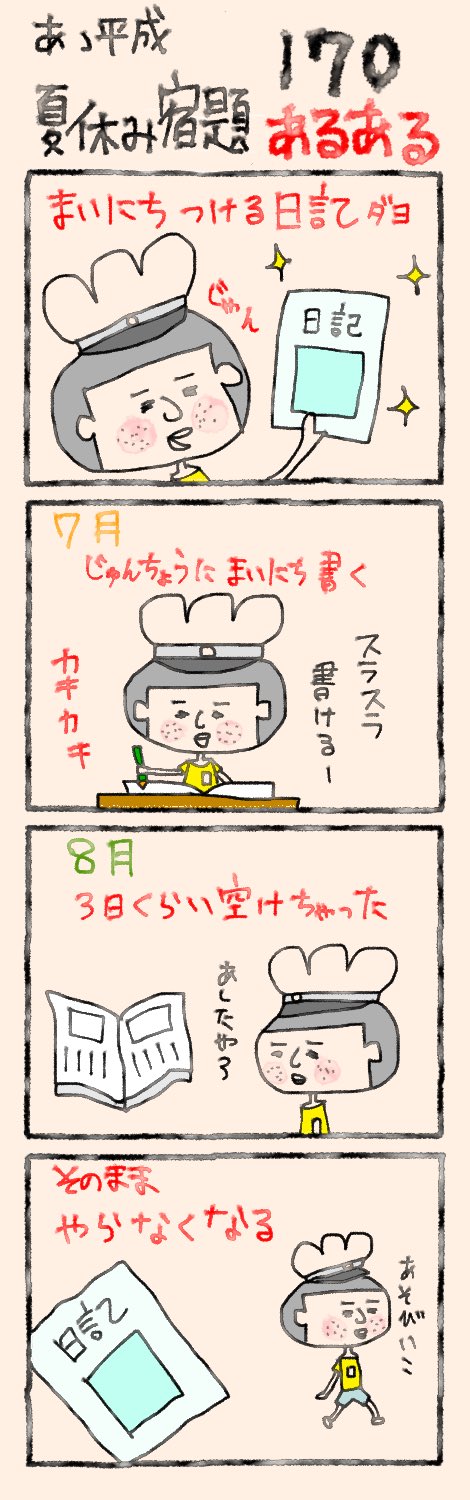 あゝ平成
170
夏休み宿題
あるある
まいにちつける日記ダヨ
じゃん
日記
7月
じゅんちょうにまいにち書く
カキカキ
スラスラ
書けるー
8月
3日くらい空けちゃった
あしたやろ
そのまま
やらなくなる
日記
あそびいこ